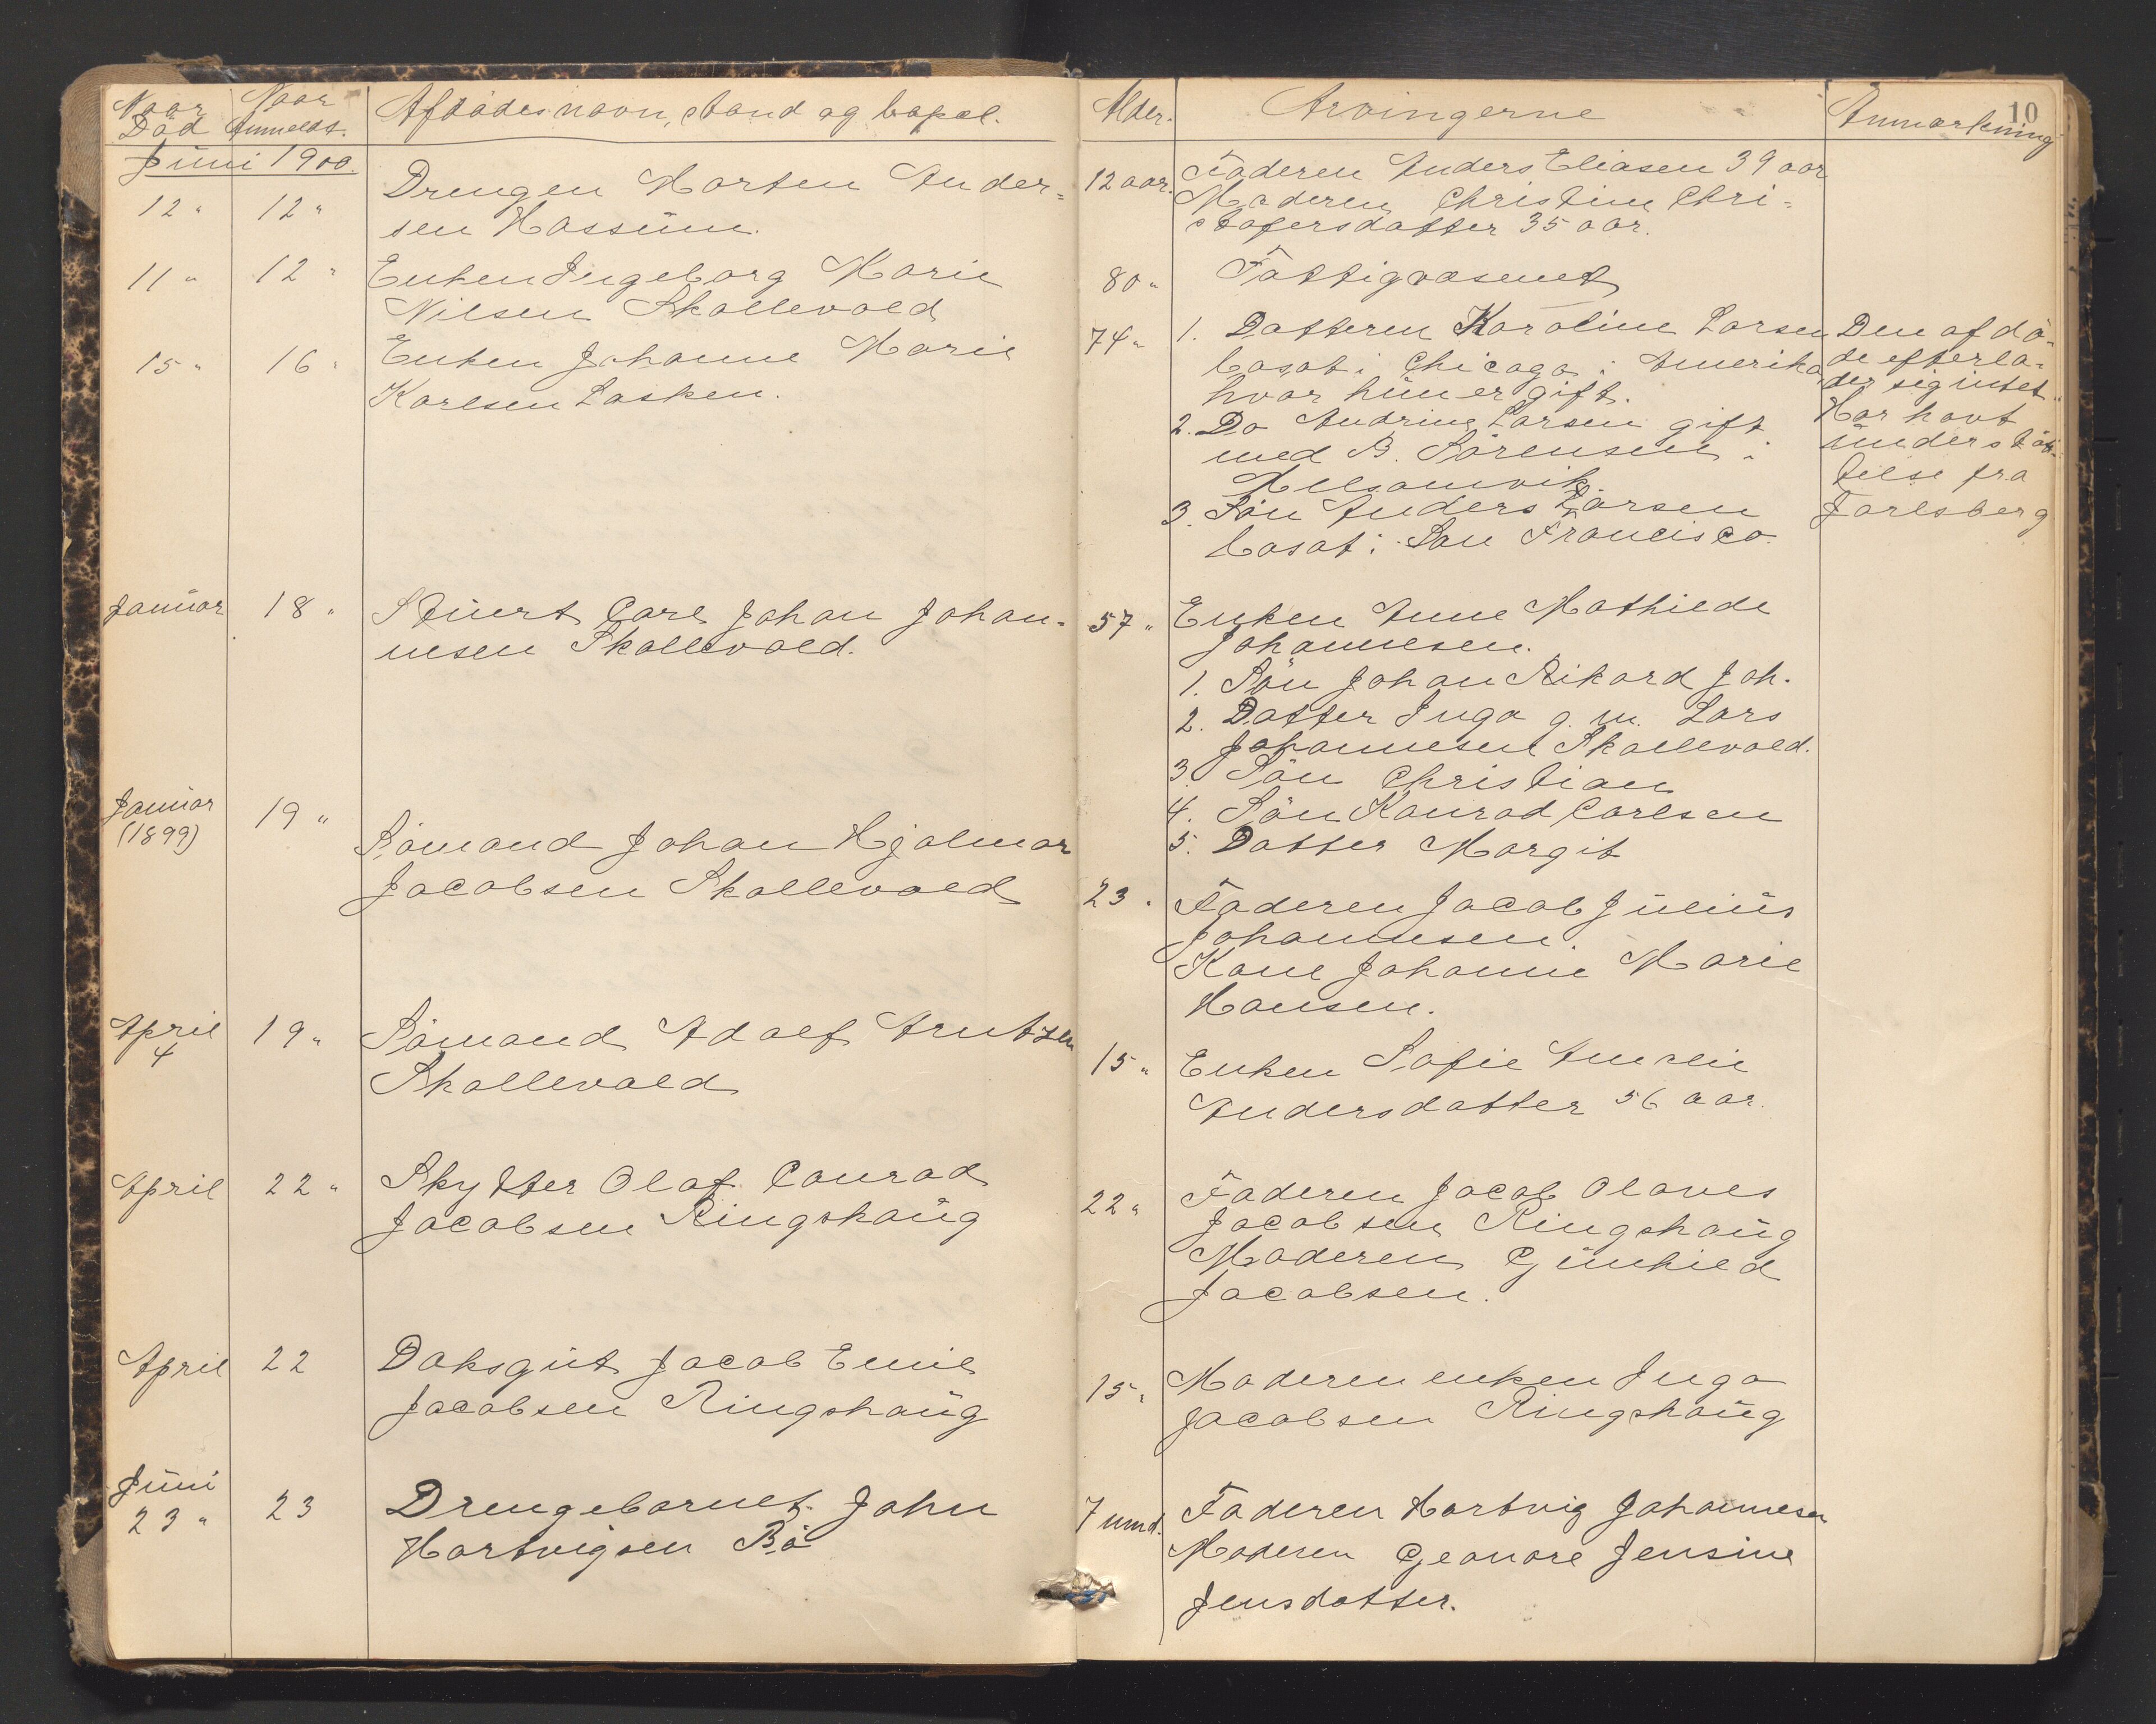 Naar Død
Naar Anmeldt.
Afdødes navn, stand og bopæl.
Alder.
Arvingerne
Anmærkning
10
Juni 1900.
12 "
12 "
Drengen Marten Ander-
sen Hassum.
12 aar.
Faderen Anders Eliasen 39 aar
Moderen Christine Chri-
stofersdatter 35 aar.
11 "
12 "
Enken Ingeborg Marie
Nilsen Skallevold
80 "
Fattigvæsenet
15 "
16 "
Enken Johanne Marie
Karlsen Lasken.
74 "
1. Datteren Karoline Larsen
bosat i Chicago i Amerika
hvor hun er gift.
2. Do Andrine Larsen gift
med B. Sørensen i
Melsomvik.
3. Søn Anders Larsen
bosat i San Francisco.
Den afdø-
de efterla-
der sig intet
Har havt
understøt-
telse fra
Jarlsberg
Januar
18 "
Stuert Carl Johan Johan-
nesen Skallevold.
57 "
Enken Anne Mathilde
Johannesen.
1. Søn Johan Rikard Joh.
2. Datter Inga g. m. Lars
Johannesen Skallevold.
3. Søn Christian
4. Søn Konrad Carlsen
5. Datter Margit
Januar
(1899)
19 "
Sømand Johan Hjalmar
Jacobsen Skallevold
23 "
Faderen Jacob Julius
Johannesen.
Kone Johanne Marie
Hansen.
April
4
19 "
Sømand Adolf Arntzen
Skallevold
15 "
Enken Sofie Amalie
Andersdatter 56 aar.
April
22 "
Skytter Olaf Conrad
Jacobsen Ringshaug
22 "
Faderen Jacob Olaves
Jacobsen Ringshaug
Moderen Gunhild
Jacobsen.
April
22
Daksgut Jacob Emil
Jacobsen Ringshaug
15 "
Moderen enken Inga
Jacobsen Ringshaug
Juni
23 "
23
Drengebarnet John
Hartvigsen Bø
7 mnd.
Faderen Hartvig Johannesen
Moderen Geanore Jensine
Jensdatter.